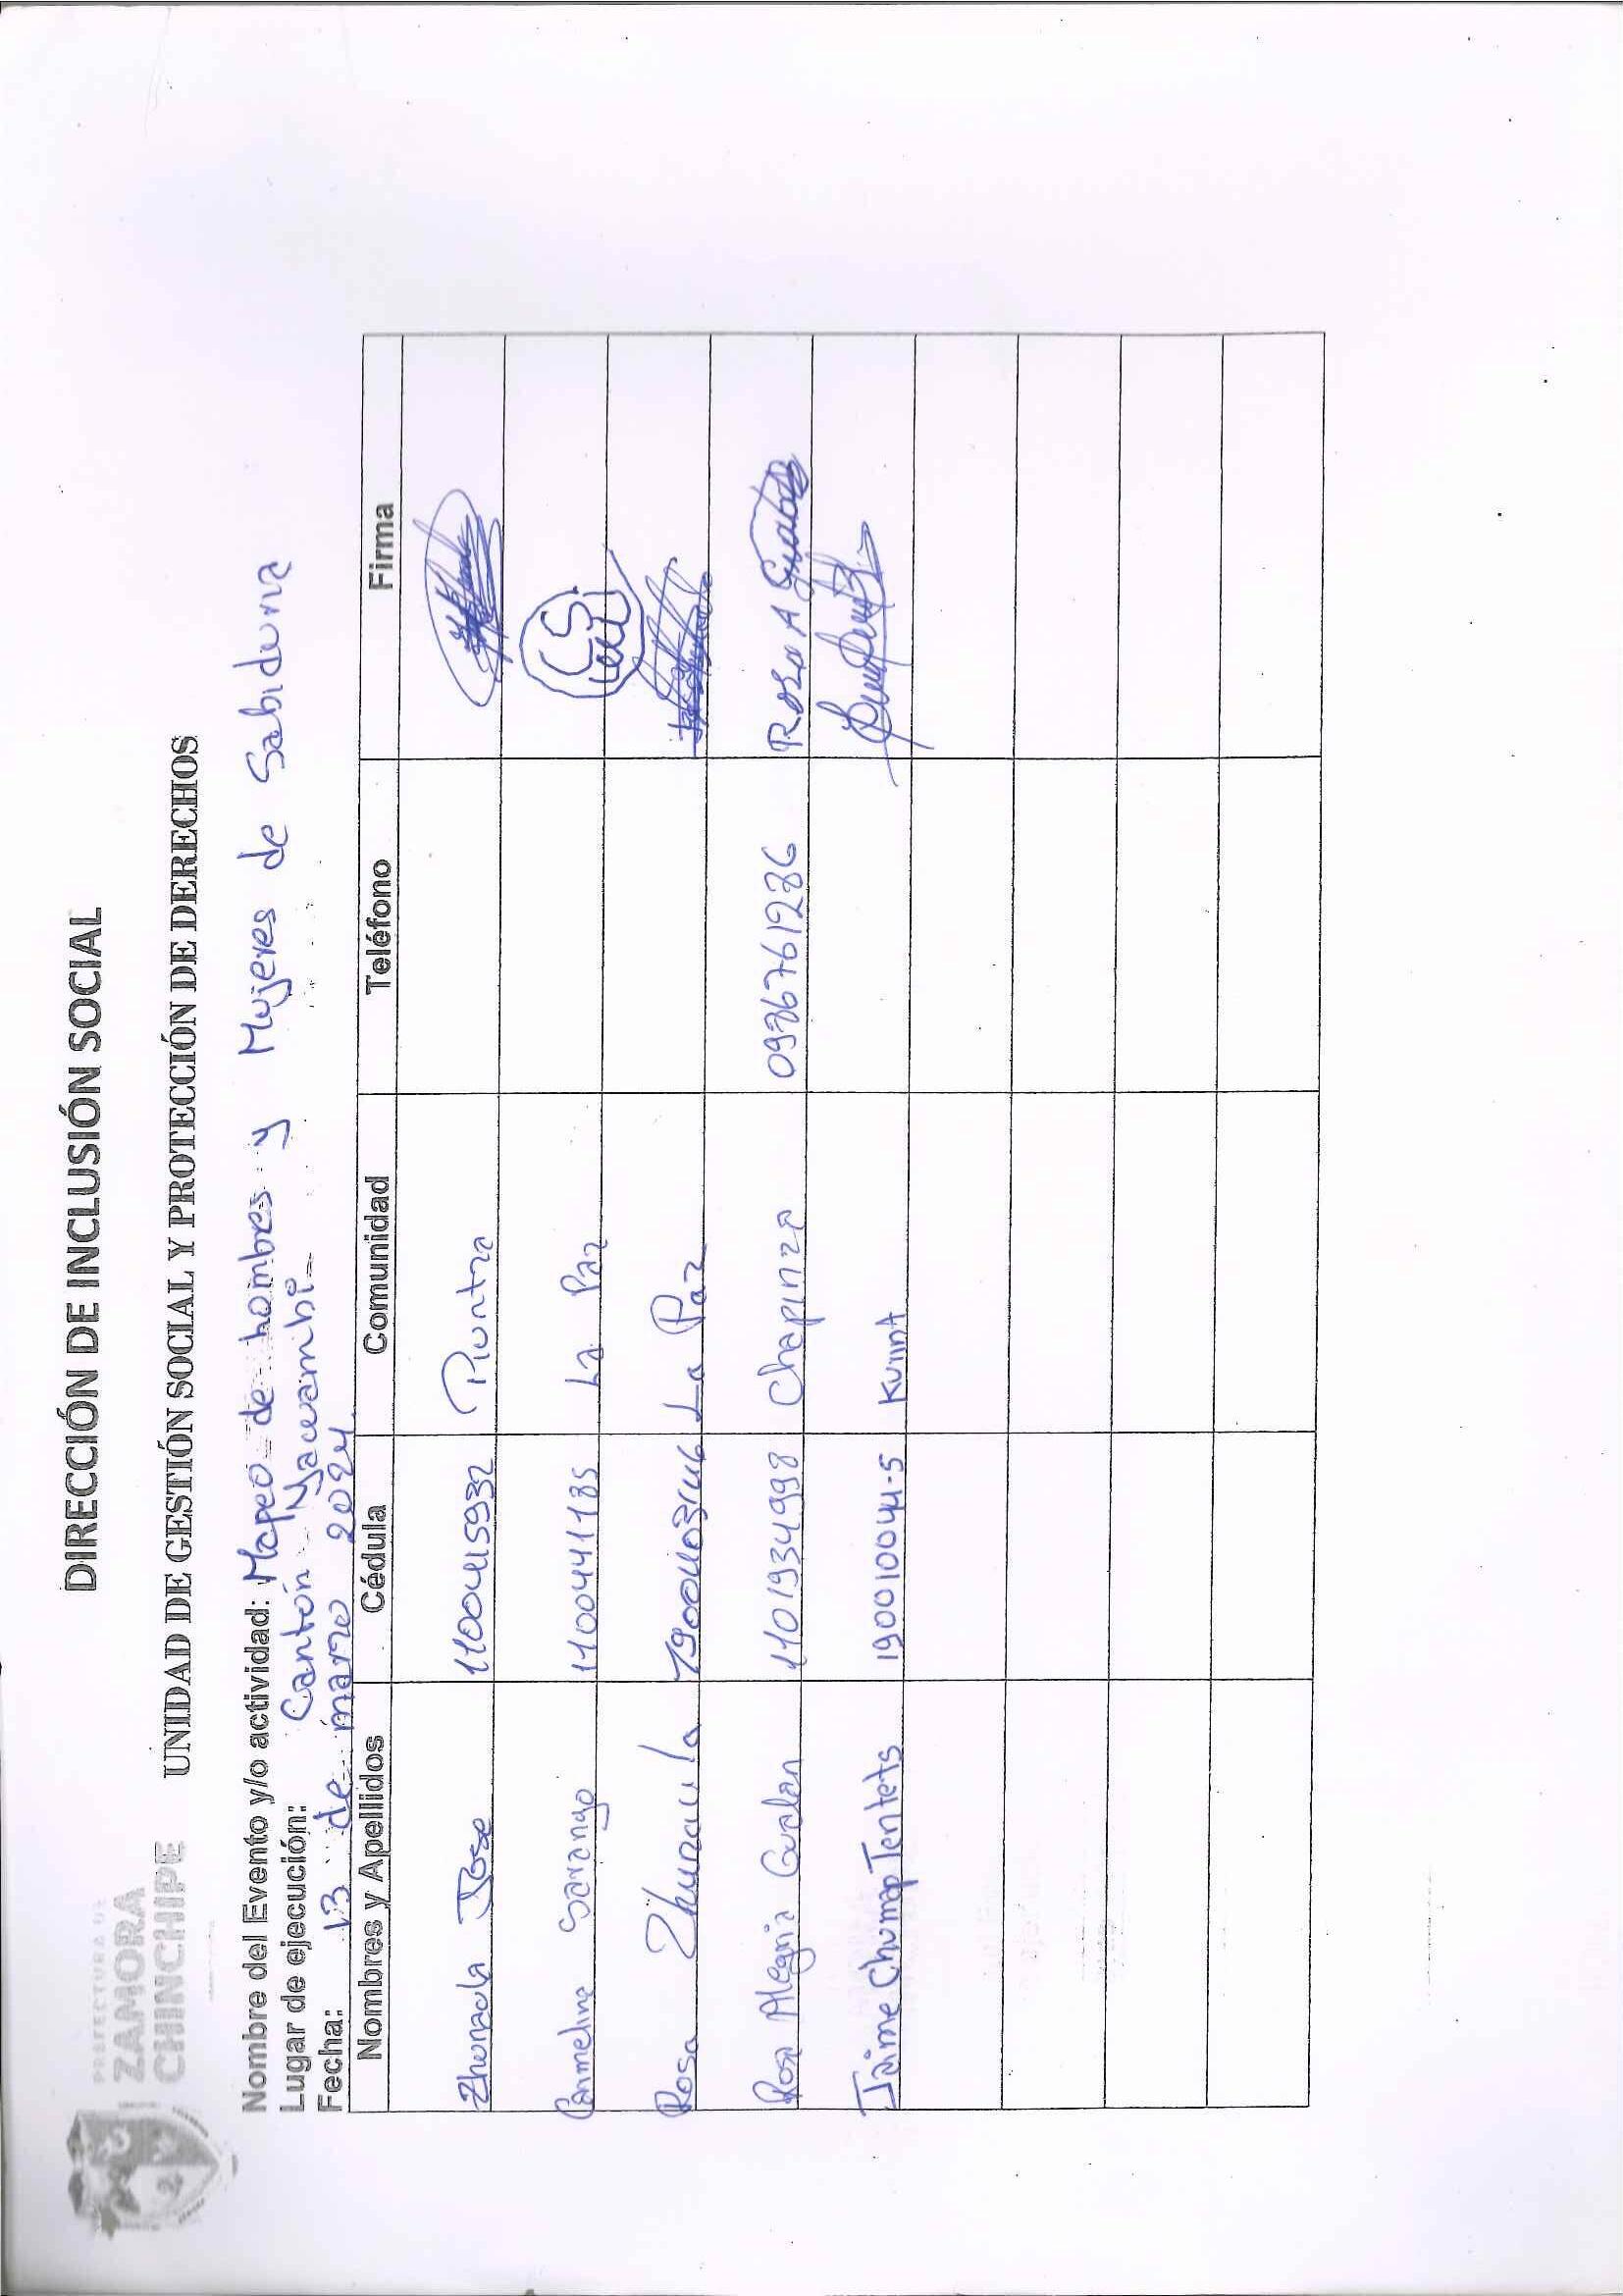 PREFECTURA DE
ZAMORA
CHINCHIPE
DIRECCIÓN DE INCLUSIÓN SOCIAL
UNIDAD DE GESTIÓN SOCIAL Y PROTECCIÓN DE DERECHOS
Nombre del Evento y/o actividad: Mapeo de hombres y Mujeres de Sabiduria
Lugar de ejecución: Cantón Yacuambi
Fecha: 13 de marzo 2024
Nombres y Apellidos Cédula Comunidad Teléfono Firma
Zhunaula Jose 1100415932 Piuntza
Carmelina Sarango 1100441185 La Paz
Rosa Zhunaula La Paz
Rosa Alegria Gualan 1101934998 Chapinza 0986761286 Rosa A Gualan
Jaime Chumap Tentets 190010044-5 Kunnt